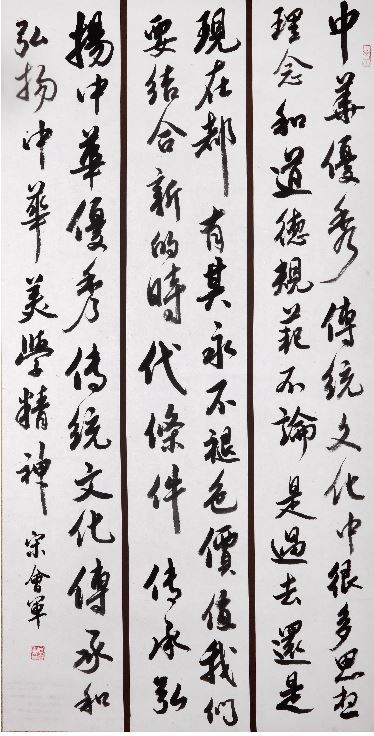 中華優秀傳統文化中很多思想
理念和道德規範不論是過去還是
現在都有其永不褪色價值我們
要結合新的時代條件传承弘
揚中華優秀传統文化傳承和
弘扬中華美學精神 宋會軍